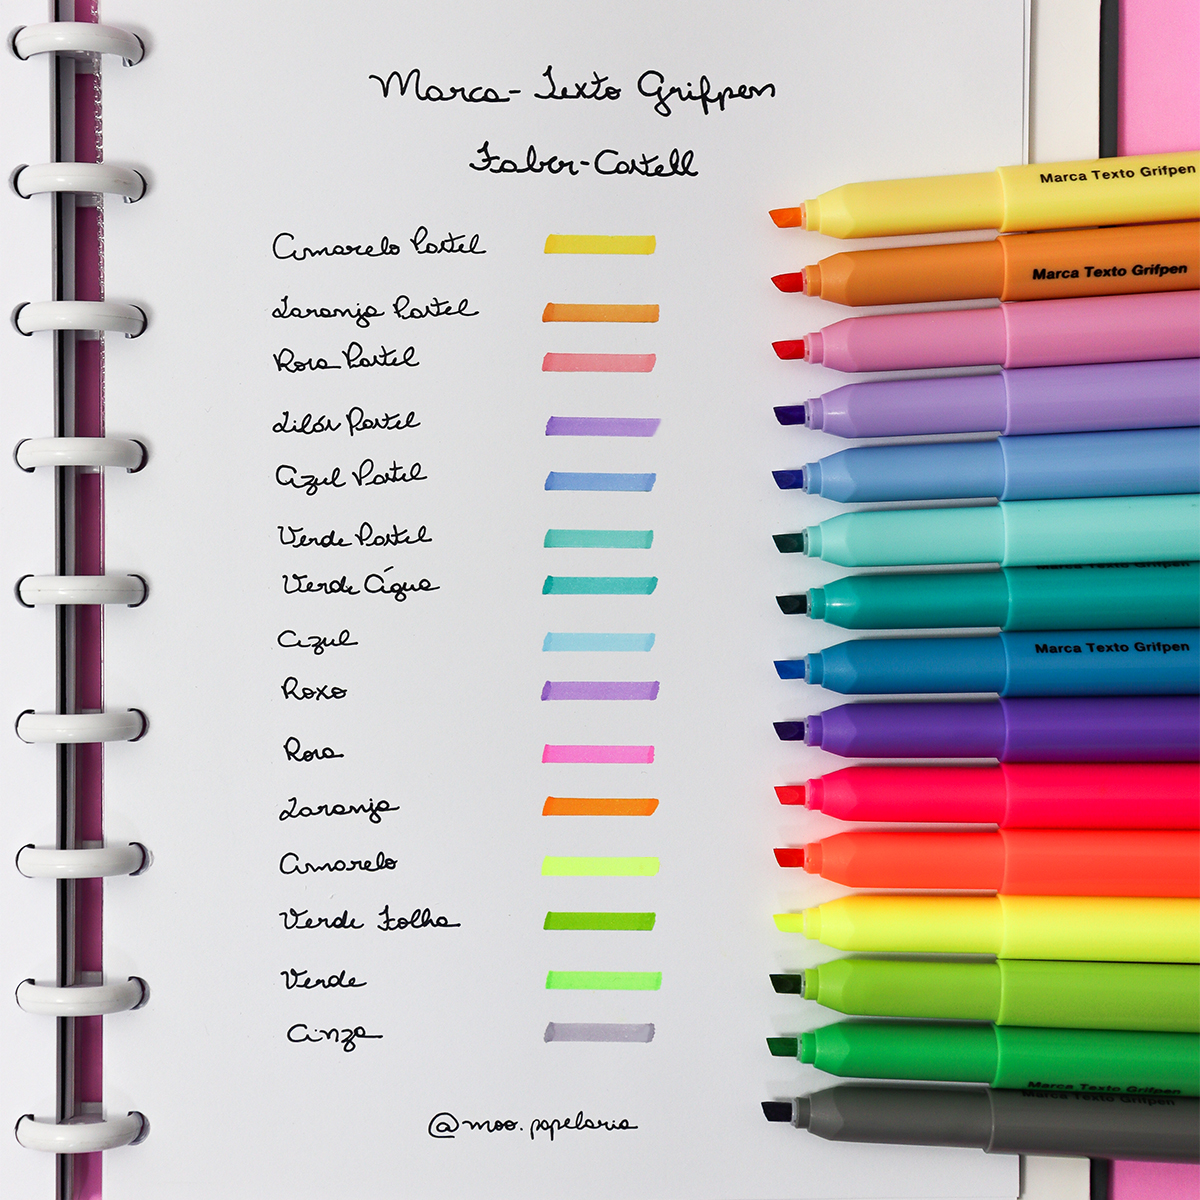 Marca-Texto Grifpen
Faber-Castell
Amarelo Pastel
Laranja Pastel
Rosa Pastel
Lilás Pastel
Azul Pastel
Verde Pastel
Verde Água
Azul
Roxo
Rosa
Laranja
Amarelo
Verde Folha
Verde
Cinza
@moo.papelaria
Marca Texto Grifpen
Marca Texto Grifpen
Marca Texto Grifpen
Marca Texto Grifpen
Marca Texto Grifpen
Marca Texto Grifpen